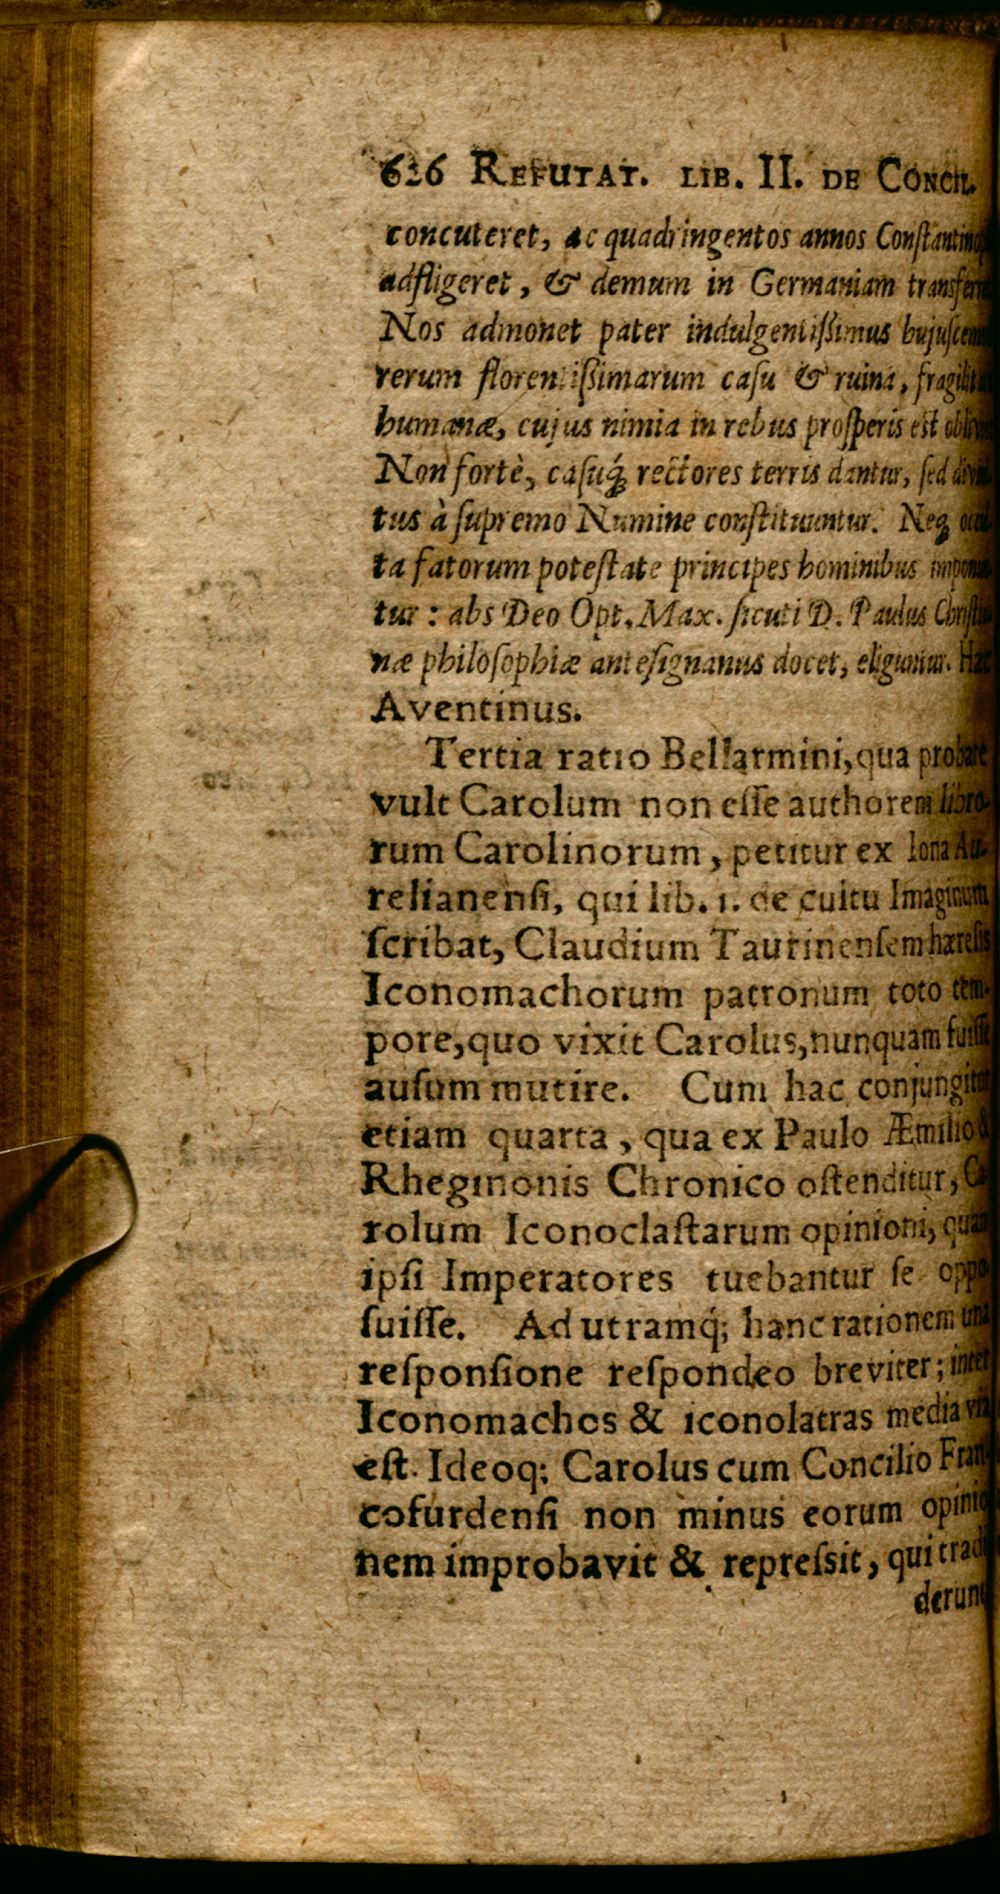 626 REFUTAT. LIB. II. DE CONCIL.
concuteret, ac quadringentos annos
adfligeret, & demum in Germaniam
Nos admonet pater indulgentißimus
rerum florentißimarum casu & ruina,
humanæ, cujus nimia in rebus prosperis est
Non fortè, casuq́; rectores terris dantur, sed
tus à supremo Numine constituuntur. Neq;
ta fatorum potestate principes hominibus
tur: abs Deo Opt. Max. sicuti D. Paulus
næ philosophiæ antesignanus docet, eliguntur. Hæc
Aventinus.
Tertia ratio Bellarmini, qua probare
vult Carolum non esse authorem libro-
rum Carolinorum, petitur ex Iona Au-
relianensi, qui lib. 1. de cultu Imaginum
scribat, Claudium Taurinensem hæresis
Iconomachorum patronum toto tem-
pore, quo vixit Carolus, nunquam fuisse
ausum mutire. Cum hac conjungitur
etiam quarta, qua ex Paulo Æmilio &
Rheginonis Chronico ostenditur, Ca
rolum Iconoclastarum opinioni, quam
ipsi Imperatores tuebantur se oppo
suisse. Ad utramq́; hanc rationem una
responsione respondeo breviter; inter
Iconomachos & iconolatras media via
est. Ideoq; Carolus cum Concilio Fran
cofurdensi non minus eorum opinio
nem improbavit & repressit, qui tradi
derunt